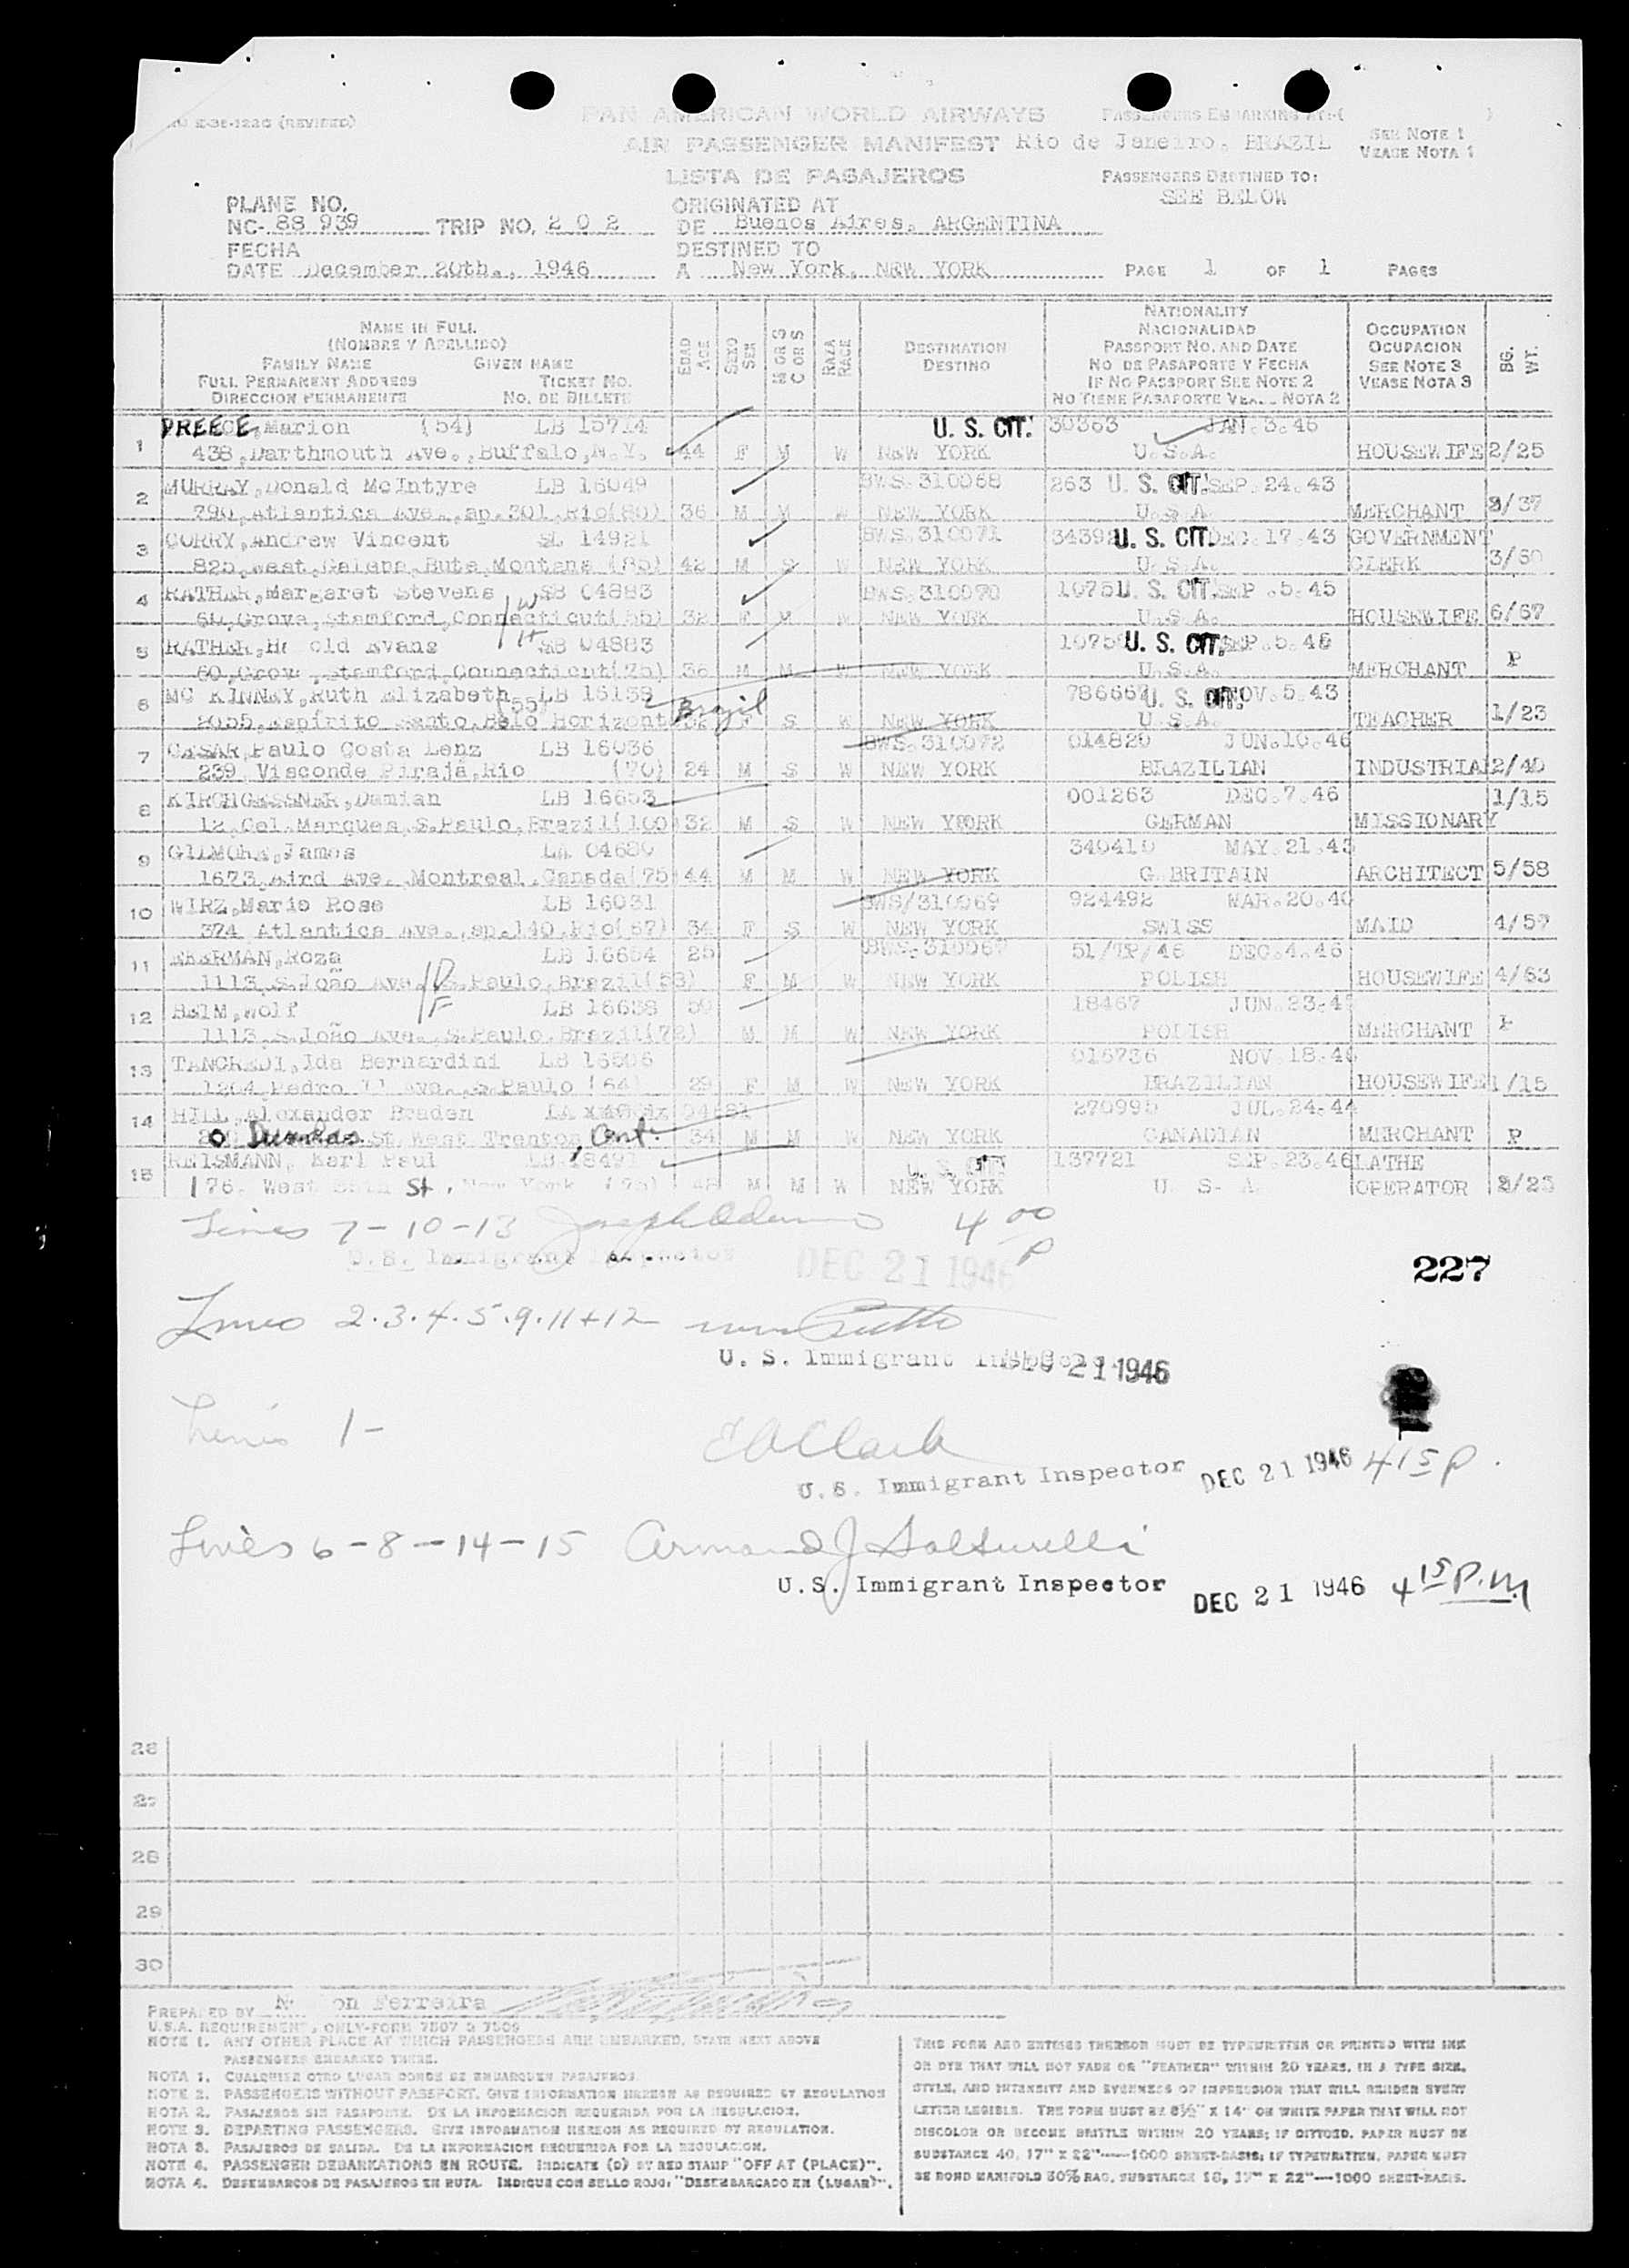 E-36-1220 (REVISED)
PAN AMERICAN WORLD AIRWAYS
PASSENGERS EMBARKING AT:-( )
AIR PASSENGER MANIFEST Rio de Janeiro, BRAZIL
SEE NOTE 1
VEASE NOTA 1
LISTA DE PASAJEROS
PASSENGERS DESTINED TO:
SEE BELOW
PLANE NO.
NC- 88 939 TRIP NO. 2 0 2
ORIGINATED AT
DE Buenos Aires, ARGENTINA
FECHA
DATE December 20th., 1946
DESTINED TO
A New York, NEW YORK
PAGE 1 OF 1 PAGES
NAME IN FULL
(NOMBRE Y APELLIDO)
FAMILY NAME GIVEN NAME
FULL PERMANENT ADDRESS TICKET NO.
DIRECCION PERMANENTE NO. DE BILLETE
EDAD AGE
SEXO SEX
M OR S C OR S
RAZA RACE
DESTINATION
DESTINO
NATIONALITY
NACIONALIDAD
PASSPORT NO. AND DATE
NO DE PASAPORTE Y FECHA
IF NO PASSPORT SEE NOTE 2
NO TIENE PASAPORTE VEASE NOTA 2
OCCUPATION
OCUPACION
SEE NOTE 3
VEASE NOTA 3
BG. WT.
1 PREECE, Marion (54) LB 15714 U. S. CIT. 30363 JAN.3.46
438,Darthmouth Ave.,Buffalo,N.Y. 44 F M W NEW YORK U.S.A. HOUSEWIFE 2/25
2 MURRAY,Donald McIntyre LB 16049 BWS.310068 263 U. S. CIT. SEP.24.43
790,Atlantica Ave.,ap.301,Rio(80) 36 M M W NEW YORK U.S.A. MERCHANT 3/37
3 CORRY,Andrew Vincent SL 14921 BWS.310071 34392 U. S. CIT. DEC.17.43 GOVERNMENT
825,West,Galena,Bute,Montana (85) 42 M S W NEW YORK U.S.A. CLERK 3/50
4 RATHER,Margaret Stevens SB 04883 BWS.310070 1075 U. S. CIT. SEP.5.45
60,Grove,Stamford,Connecticut(55) 32 F M W NEW YORK U.S.A. HOUSEWIFE 6/67
5 RATHER,H old Evans SB 04883 1075 U. S. CIT. SEP.5.45
60,Grov ,Stamford,Connecticut(75) 36 M M W NEW YORK U.S.A. MERCHANT P
6 MC KINNEY,Ruth Elizabeth (55) LB 16159 Brazil 786667 U. S. CIT. NOV.5.43
2055,Espírito Santo,Belo Horizont 32 F S W NEW YORK U.S.A. TEACHER 1/23
7 CESAR,Paulo Costa Lenz LB 16036 BWS.310072 014820 JUN.10.46
239 Visconde Pirajá,Rio (70) 24 M S W NEW YORK BRAZILIAN INDUSTRIAL 2/40
8 KIRCHGESSNER,Damian LB 16653 001263 DEC.7.46 1/15
12,Cel.Marques,S.Paulo,Brazil(100 32 M S W NEW YORK GERMAN MISSIONARY
9 GILMORE,James LA 04680 340410 MAY.21.43
1673,Aird Ave.,Montreal,Canada(75 44 M M W NEW YORK G.BRITAIN ARCHITECT 5/58
10 WIRZ,Marie Rose LB 16031 BWS/310069 924492 MAR.20.40
374 Atlantica Ave.,ap.140,Rio(67) 34 F S W NEW YORK SWISS MAID 4/59
11 EKERMAN,Roza LB 16654 25 BWS.310067 51/TP/46 DEC.4.46
1113,S.João Ave.,S.Paulo,Brazil(53) F M W NEW YORK POLISH HOUSEWIFE 4/63
12 BEIM,Wolf LB 16638 50 18467 JUN.23.4
1113,S.João Ave.,S.Paulo,Brazil(72) M M W NEW YORK POLISH MERCHANT P
13 TANCREDI,Ida Bernardini LB 16606 016736 NOV.18.46
1204,Pedro II Ave.,S.Paulo (64) 29 F M W NEW YORK BRAZILIAN HOUSEWIFE 1/15
14 HILL,Alexander Braden LA 270995 JUL.24.44
Dundas St West Trenton, Ont. 34 M M W NEW YORK CANADIAN MERCHANT P
15 REISMANN, Karl Paul LB 1549 U. S. CIT 137721 SEP.23.46 LATHE
176. West 86th St, New York (75) 48 M M W NEW YORK U. S. A. OPERATOR 2/23
Lines 7-10-13 Joseph 4 00 P
U.S. Immigrant Inspector DEC 21 1946
227
Lines 2.3.4.5.9.11+12
U. S. Immigrant Inspector DEC 21 1946
Lines 1- E A Clark
U. S. Immigrant Inspector DEC 21 1946 4 15 P.
Lines 6-8-14-15 Armand J Salturelli
U. S. Immigrant Inspector DEC 21 1946 4 15 P.M
26
27
28
29
30
PREPARED BY N on Ferreira
U.S.A. REQUIREMENT, ONLY-FORM 7507 & 7509
NOTE 1. ANY OTHER PLACE AT WHICH PASSENGERS ARE EMBARKED, STATE NEXT ABOVE
PASSENGERS EMBARKED THERE.
NOTA 1. CUALQUIER OTRO LUGAR DONDE SE EMBARQUEN PASAJEROS.
NOTE 2. PASSENGERS WITHOUT PASSPORT, GIVE INFORMATION HEREON AS REQUIRED BY REGULATION
NOTA 2. PASAJEROS SIN PASAPORTE. DE LA INFORMACION REQUERIDA POR LA REGULACION.
NOTE 3. DEPARTING PASSENGERS. GIVE INFORMATION HEREON AS REQUIRED BY REGULATION.
NOTA 3. PASAJEROS DE SALIDA. DE LA INFORMACION REQUERIDA POR LA REGULACION.
NOTE 4. PASSENGER DEBARKATIONS EN ROUTE. INDICATE (D) BY RED STAMP "OFF AT (PLACE)".
NOTA 4. DESEMBARCOS DE PASAJEROS EN RUTA. INDIQUE CON SELLO ROJO: "DESEMBARCADO EN (LUGAR)".
THIS FORM AND ENTRIES THEREON MUST BE TYPEWRITTEN OR PRINTED WITH INK
OR DYE THAT WILL NOT FADE OR "FEATHER" WITHIN 20 YEARS, IN A TYPE SIZE,
STYLE, AND INTENSITY AND EVENNESS OF IMPRESSION THAT WILL RENDER EVERY
LETTER LEGIBLE. THE FORM MUST BE 8½" X 14" ON WHITE PAPER THAT WILL NOT
DISCOLOR OR BECOME BRITTLE WITHIN 20 YEARS; IF DITTOED, PAPER MUST BE
SUBSTANCE 40, 17" X 22"—1000 SHEET-BASIS; IF TYPEWRITTEN, PAPER MUST
BE BOND MANIFOLD 50% RAG, SUBSTANCE 16, 17" X 22"—1000 SHEET-BASIS.